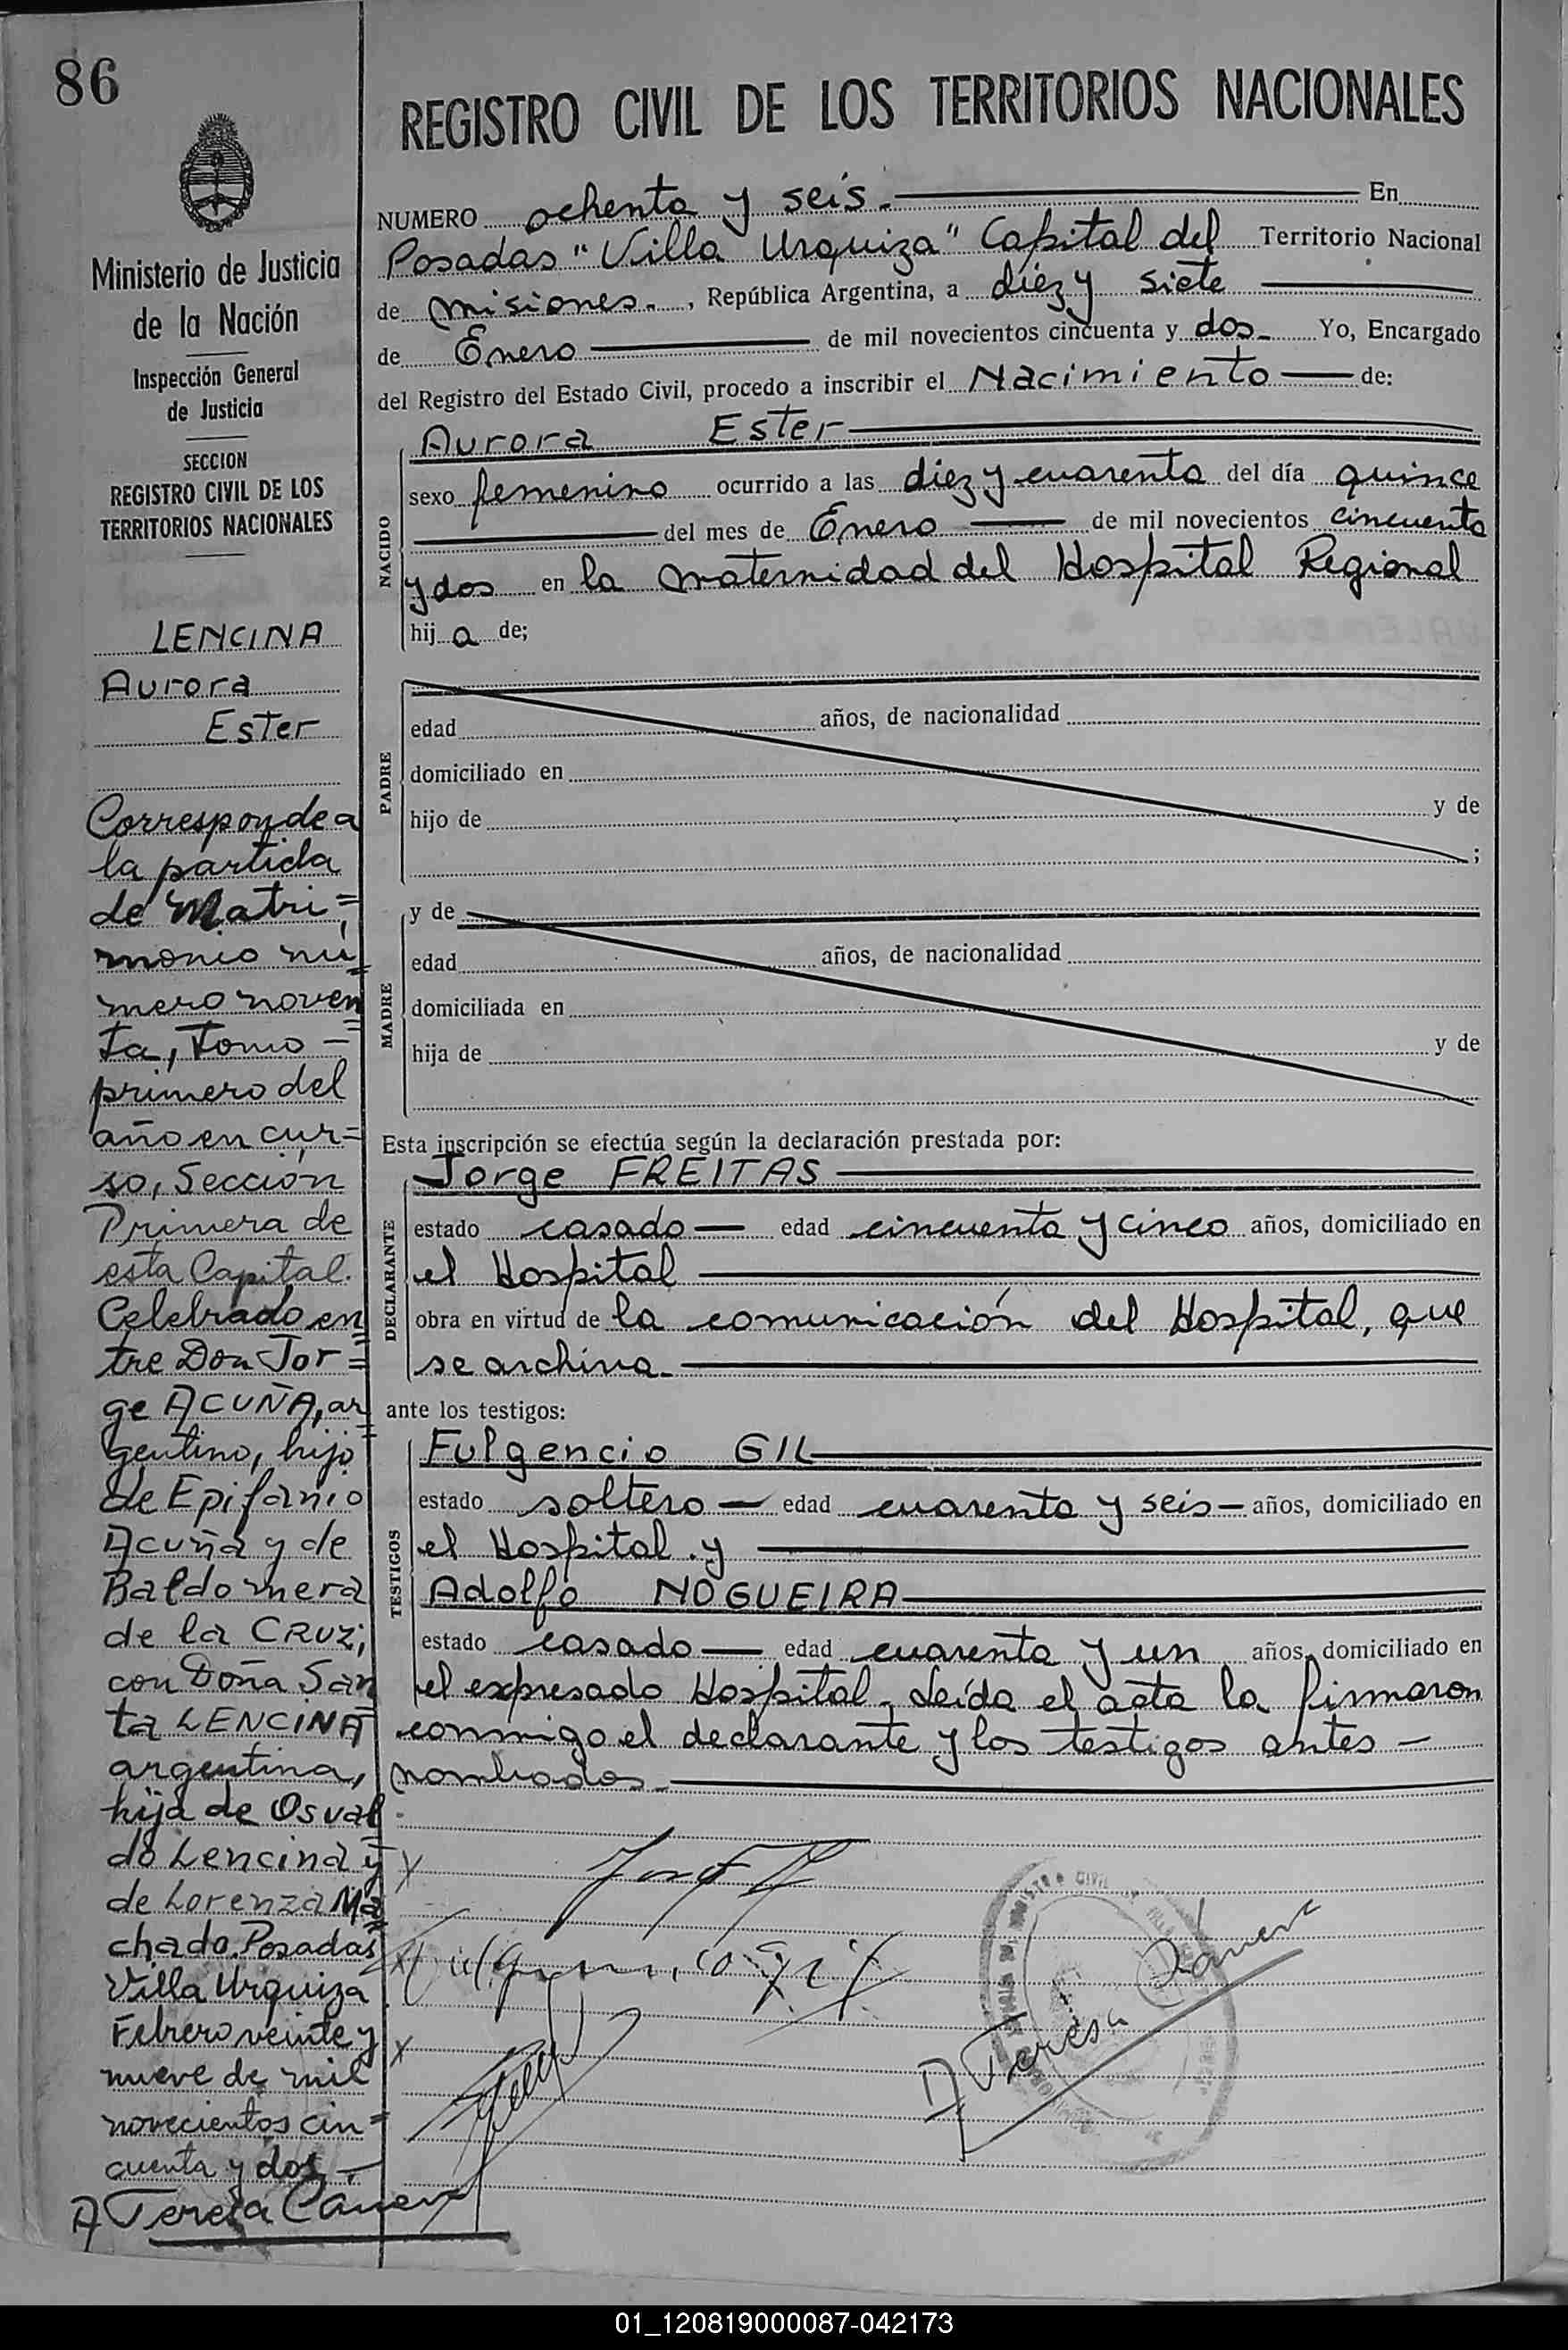 86
REGISTRO CIVIL DE LOS TERRITORIOS NACIONALES
Ministerio de Justicia
de la Nación
Inspección General
de Justicia
SECCION
REGISTRO CIVIL DE LOS
TERRITORIOS NACIONALES
LENCINA
Aurora
Ester
Corresponde a
la partida
de Matri=
monio nú=
mero noven=
ta, Tomo —
primero del
año en cur=
so, Sección
Primera de
esta Capital.
Celebrado en=
tre Don Jor=
ge ACUÑA, ar=
gentino, hijo
de Epifanio
Acuña y de
Baldomera
de la CRUZ;
con Doña San
ta LENCINA
argentina,
hija de Osval=
do Lencina y
de Lorenza Ma=
chado. Posadas
Villa Urquiza
Febrero veinte y
nueve de mil
novecientos cin=
cuenta y dos. —
A Teresa
NUMERO ochenta y seis. En
Posadas "Villa Urquiza" Capital del Territorio Nacional
de Misiones. , República Argentina, a diez y siete
de Enero de mil novecientos cincuenta y dos Yo, Encargado
del Registro del Estado Civil, procedo a inscribir el Nacimiento de:
NACIDO
Aurora Ester
sexo femenino ocurrido a las diez y cuarenta del día quince
del mes de Enero de mil novecientos cincuenta
y dos en la maternidad del Hospital Regional
hij a de;
PADRE
edad años, de nacionalidad
domiciliado en
hijo de y de
;
MADRE
y de
edad años, de nacionalidad
domiciliada en
hija de y de
Esta inscripción se efectúa según la declaración prestada por:
DECLARANTE
Jorge FREITAS
estado casado — edad cincuenta y cinco años, domiciliado en
el Hospital
obra en virtud de la comunicación del Hospital, que
se archiva.
ante los testigos:
TESTIGOS
Fulgencio GIL
estado soltero — edad cuarenta y seis — años, domiciliado en
el Hospital y
Adolfo NOGUEIRA
estado casado — edad cuarenta y un años, domiciliado en
el expresado Hospital. Leída el acta la firmaron
conmigo el declarante y los testigos antes —
nombrados.
x
x Fulgencio Gil
x
A Teresa
01_120819000087-042173